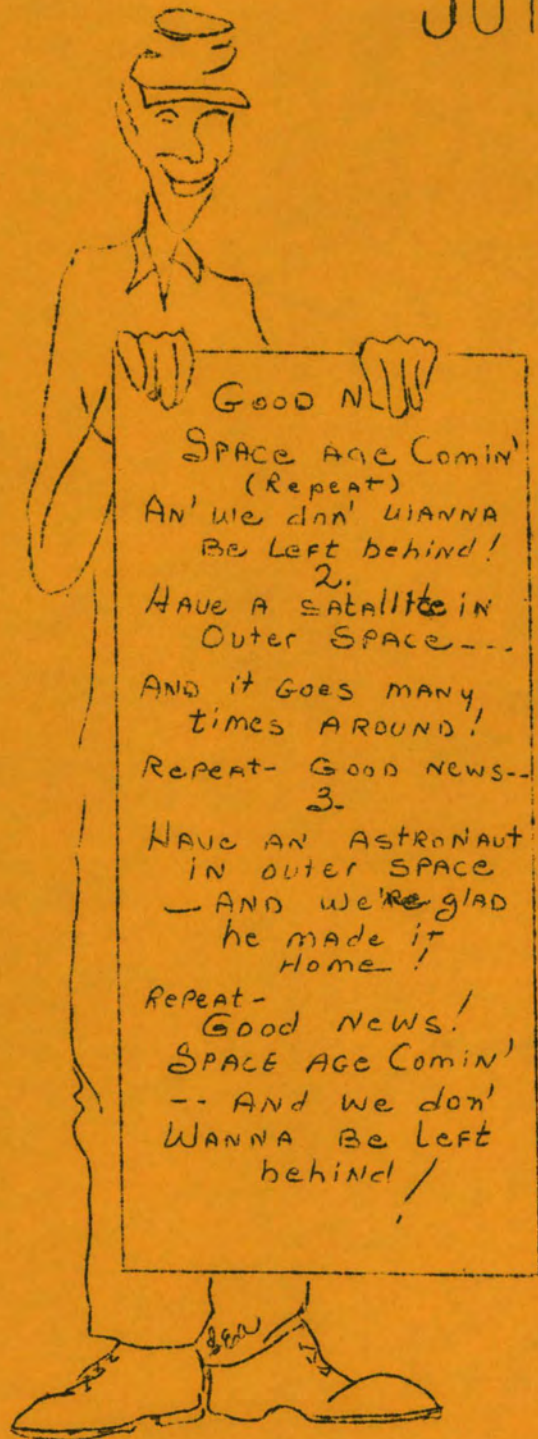 GOOD N
SPACE AGE COMIN'
(REPEAT)
AN' WE don' WANNA
BE LEFT behind!
2.
HAVE A SATALLITE IN
OUTER SPACE---
AND it GOES MANY
times AROUND!
REPEAT- GOOD NEWS--
3.
HAVE AN ASTRONAUT
IN OUTER SPACE
— AND WE'RE glAD
he MADE it
HOME!
REPEAT-
GOOD NEWS!
SPACE AGE COMIN'
-- ANd we don'
WANNA BE LEFT
behiNd!